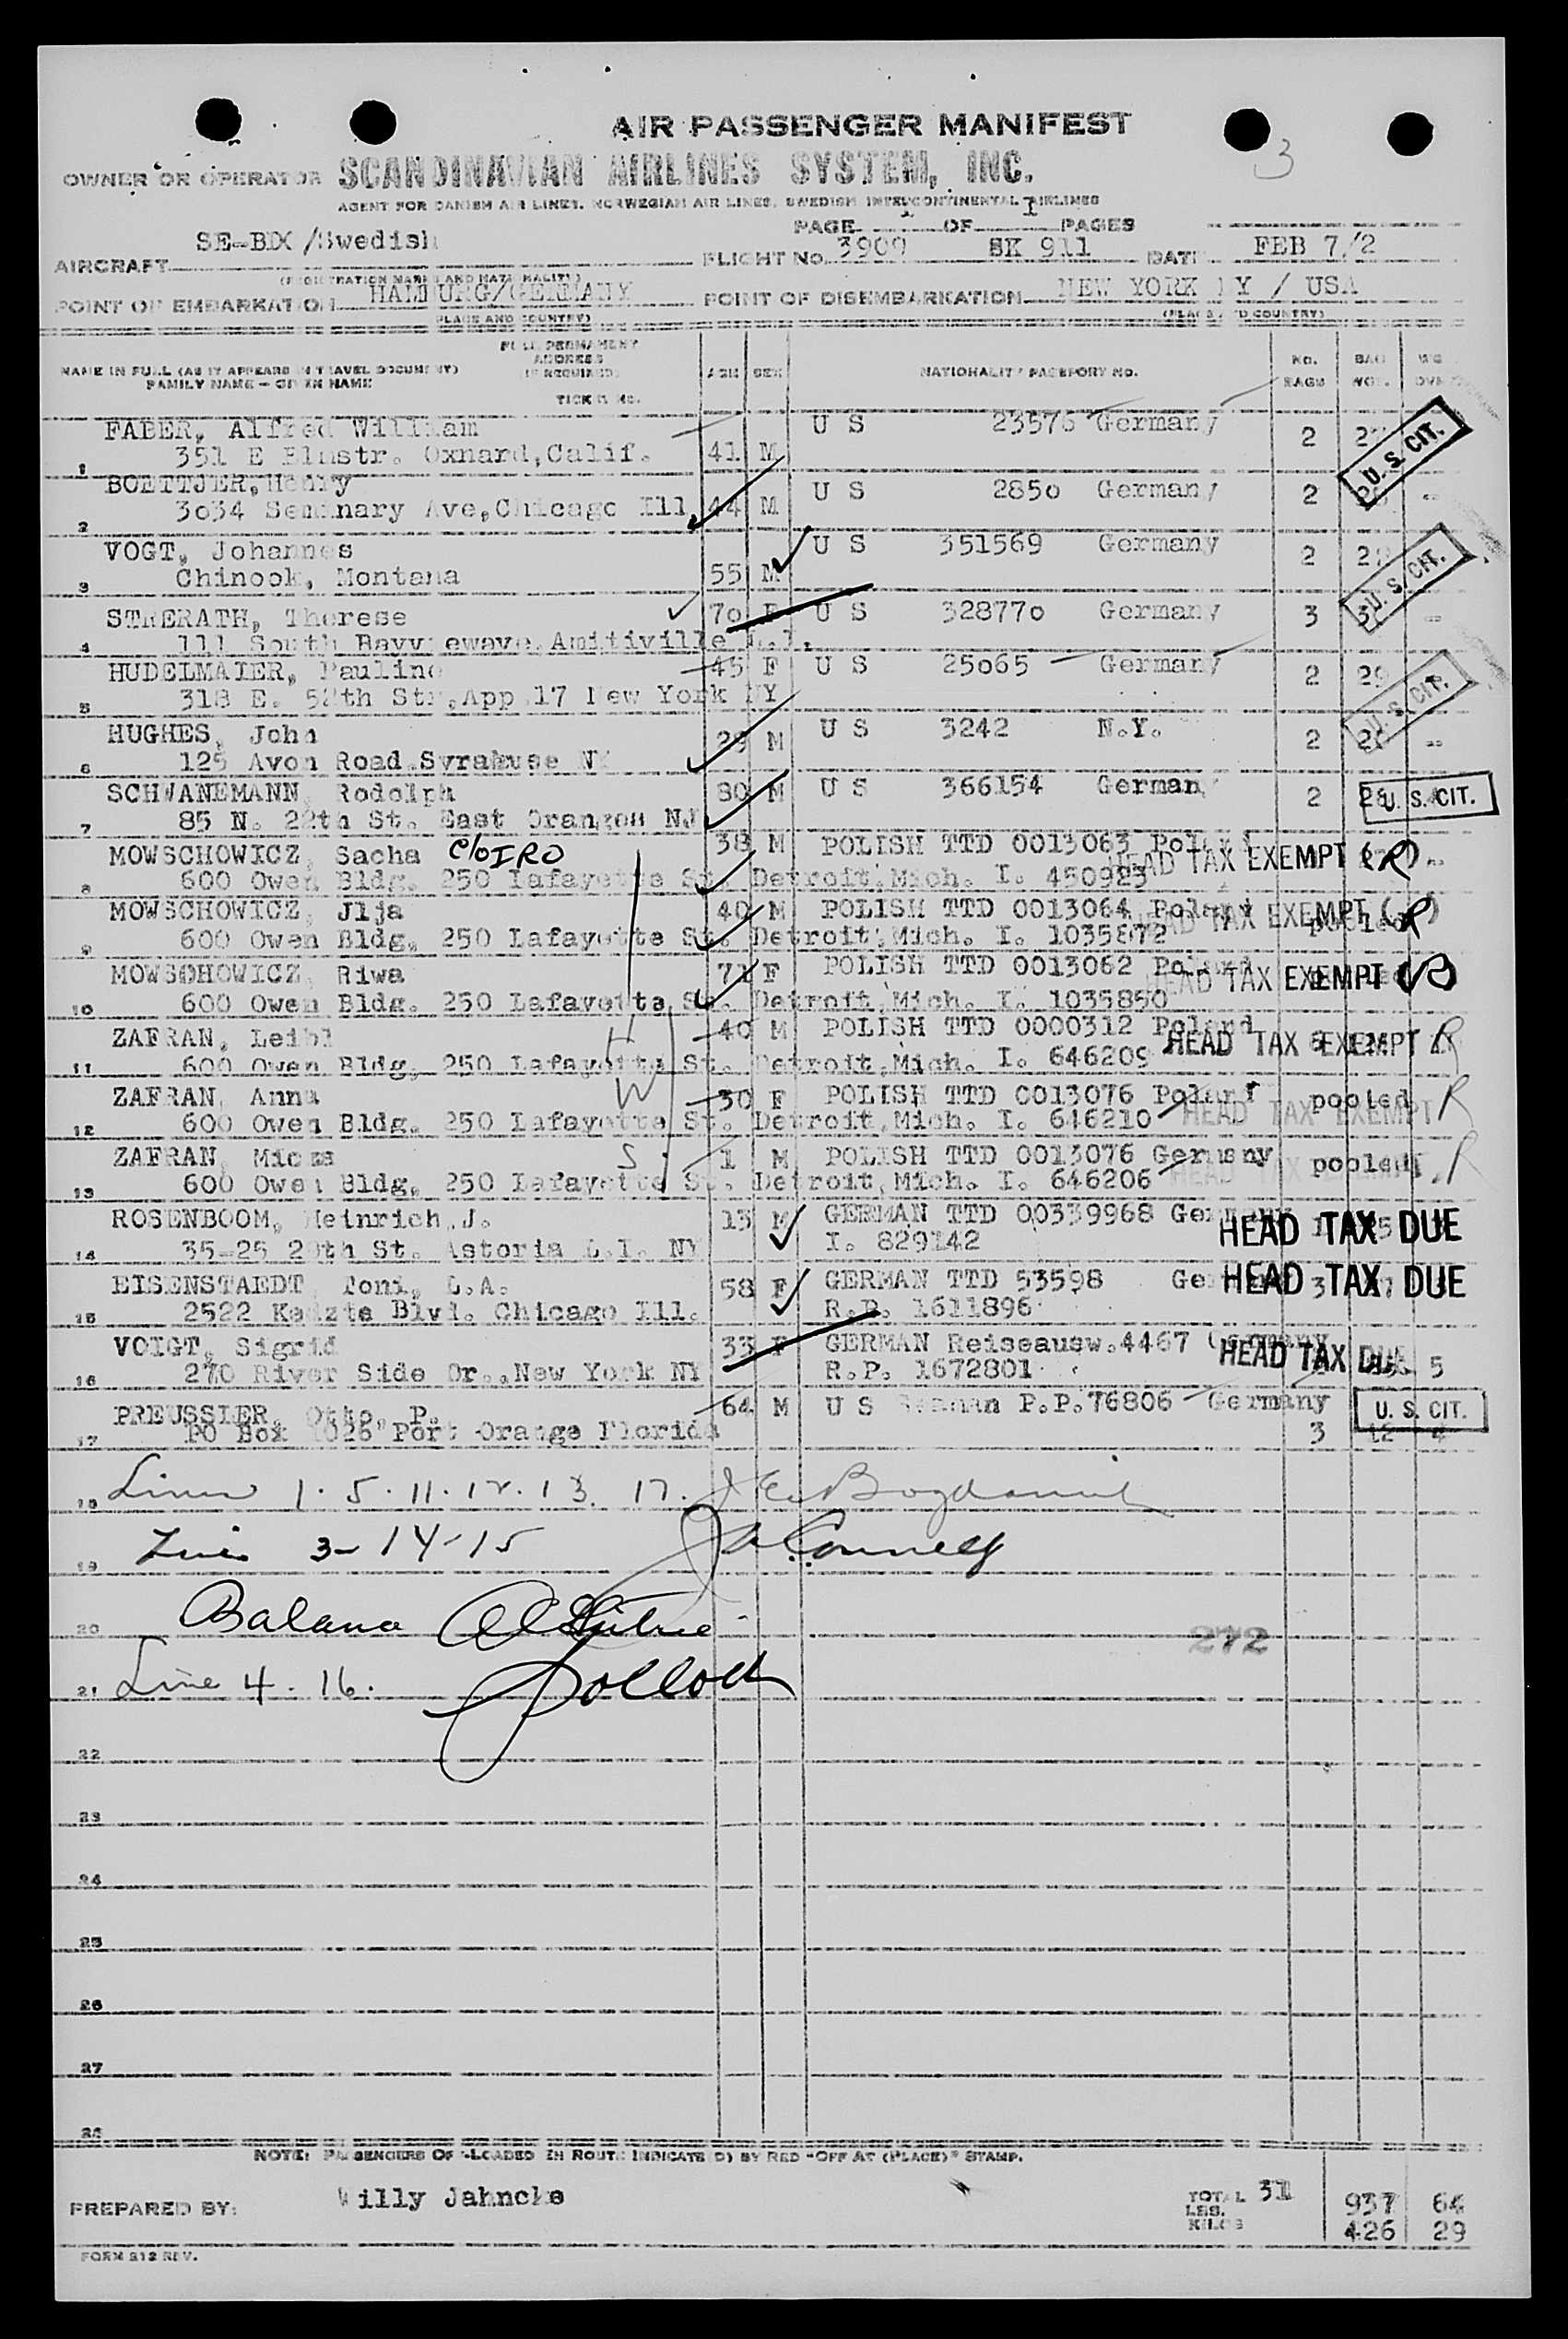 3
AIR PASSENGER MANIFEST
OWNER OR OPERATOR SCANDINAVIAN AIRLINES SYSTEM, INC.
AGENT FOR DANISH AIR LINES, NORWEGIAN AIR LINES, SWEDISH INTERCONTINENTAL AIRLINES
PAGE 1 OF 1 PAGES
AIRCRAFT SE-BDX /Swedish FLIGHT No. 3909 SK 911 DATE FEB 7/2
(REGISTRATION MARKS AND NATIONALITY)
POINT OF EMBARKATION HAMBURG/GERMANY POINT OF DISEMBARKATION NEW YORK NY / USA
(PLACE AND COUNTRY) (PLACE AND COUNTRY)
NAME IN FULL (AS IT APPEARS IN TRAVEL DOCUMENT) FULL PERMANENT ADDRESS (IF REQUIRED) AGE SEX NATIONALITY PASSPORT NO. NO. BAGS BAG WGT.
FAMILY NAME - GIVEN NAME TICKET NO.
FABER, Alfred William U S 23576 Germany 2 U. S. CIT.
1 351 E Elmstr. Oxnard, Calif. 41 M
BOETTJER, Henry U S 2850 Germany 2 --
2 3034 Semmnary Ave, Chicago Ill. 44 M
VOGT, Johannes U S 351569 Germany 2 U. S. CIT.
3 Chinook, Montana 55 M
STRERATH, Therese 70 F U S 328770 Germany 3 --
4 111 South Bayviewave, Amitiville N.Y.
HUDELMAIER, Pauline 45 F U S 25065 Germany 2 29 U. S. CIT.
5 318 E. 52th Str., App 17 New York NY
HUGHES, John 29 M U S 3242 N.Y. 2 --
6 125 Avon Road Syrakuse NY
SCHWANEMANN, Rodolph 80 M U S 366154 German 2 28 U. S. CIT.
7 85 N. 22th St. East Oranges NJ
MOWSCHOWICZ, Sacha c/o IRO 38 M POLISH TTD 0013063 Poland HEAD TAX EXEMPT (R) --
8 600 Owen Bldg. 250 Lafayette St. Detroit, Mich. I. 450923
MOWSCHOWICZ, Jlja 40 M POLISH TTD 0013064 Poland HEAD TAX EXEMPT (R) pooled
9 600 Owen Bldg, 250 Lafayette St. Detroit, Mich. I. 1035872
MOWSOHOWICZ, Riwa 71 F POLISH TTD 0013062 Poland HEAD TAX EXEMPT (R)
10 600 Owen Bldg. 250 Lafayette St. Detroit, Mich. I. 1035850
ZAFRAN, Leibl H 40 M POLISH TTD 0000312 Poland HEAD TAX EXEMPT R
11 600 Owen Bldg, 250 Lafayette St. Detroit, Mich. I. 646209
ZAFRAN, Anna W 30 F POLISH TTD 0013076 Poland pooled HEAD TAX EXEMPT R
12 600 Owen Bldg. 250 Lafayette St. Detroit, Mich. I. 646210
ZAFRAN, S 1 M POLISH TTD 0013076 Germany pooled HEAD TAX EXEMPT R
13 600 Owen Bldg, 250 Lafayette St. Detroit, Mich. I. 646206
ROSENBOOM, Heinrich, J. 13 M GERMAN TTD 00339968 Germany HEAD TAX DUE
14 35-25 29th St. Astoria L.I. NY I. 829142
EISENSTAEDT, Toni, L.A. 58 F GERMAN TTD 53598 HEAD TAX DUE 3
15 2522 Kedzte Blvd. Chicago Ill. R.P. 1611896
VOIGT, Sigrid 33 F GERMAN Reiseausw. 4467 Germany HEAD TAX DUE 5
16 270 River Side Dr., New York NY R.P. 1672801
PREUSSIER, Otto, P. 64 M U S German P.P. 76806 Germany U. S. CIT.
17 PO Box 1026 Port Orange Florida 3 12 4
18 Lines 1. 5. 11. 12. 13. 17.
19 Lines 3-14-15 Connelly
20 Balance
272
21 Line 4. 16. Pollock
22
23
24
25
26
27
28
NOTE: PASSENGERS OFF-LOADED IN ROUTE INDICATE(D) BY RED "OFF AT (PLACE)" STAMP.
PREPARED BY: Willy Jahncke TOTAL 31
LBS. 937 64
KILOS 426 29
FORM 212 REV.